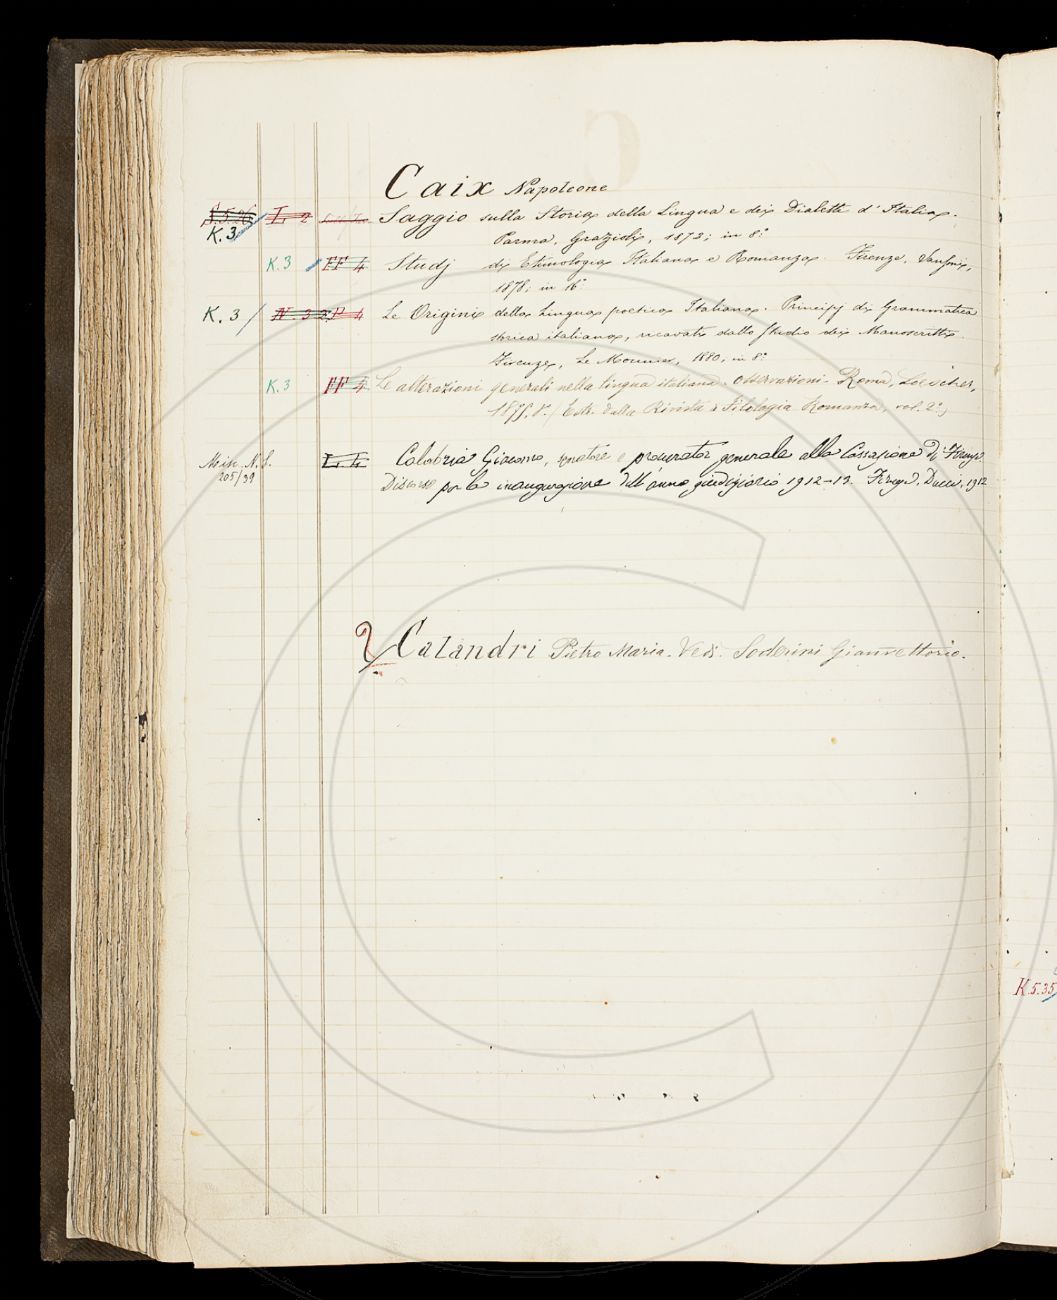 Caix Napoleone
K. 3 L 2 Saggio sulla Storia della Lingua e dei Dialetti d'Italia.
Parma, Grazioli, 1872; in 8.°
K. 3 FF 4 Studj di Etimologia Italiana e Romanza. Firenze, Sansoni,
1878; in 16°
K. 3 N. 3 P 4 Le Origini della Lingua poetica Italiana. Principj di Grammatica
storica italiana, ricavati dallo studio dei Manoscritti.
Firenze, Le Monnier, 1880, in 8.°
K. 3 FF 4 Le alterazioni generali nella lingua italiana. Osservazioni. Roma, Loescher,
1875, 8°. (Estr. dalla Rivista di Filologia Romanza, vol. 2°)
Misc. N. S. LL Calabria Giacomo, senatore e procurator generale alla Cassazione di Firenze
205/39 Discorso per la inaugurazione dell'anno giudiziario 1912-13. Firenze, Ducci, 1912
Calandri Pietro Maria. Vedi. Soderini Gianvettorio.
K. 5. 35